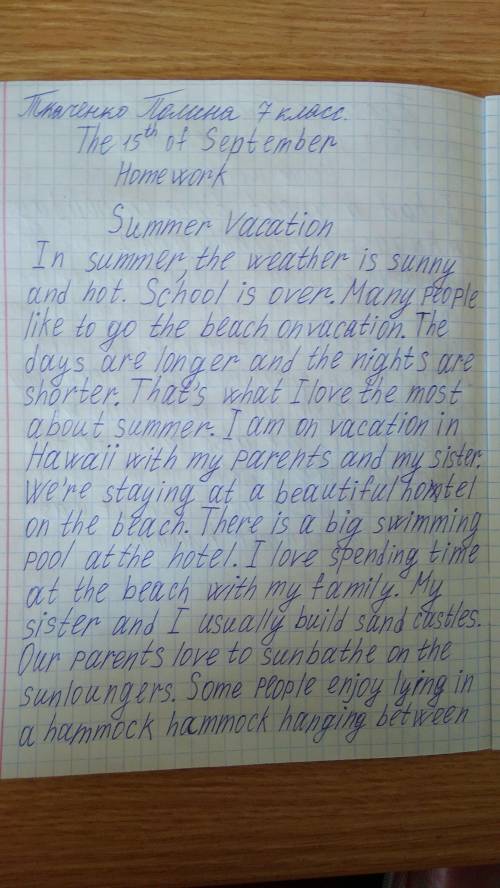 Ткаченко Полина 7 класс.
The 15th of September
Homework
Summer Vacation
In summer, the weather is sunny
and hot. School is over. Many people
like to go the beach on vacation. The
days are longer and the nights are
shorter. That's what I love the most
about summer. I am on vacation in
Hawaii with my parents and my sister.
We're staying at a beautiful hotel
on the beach. There is a big swimming
pool at the hotel. I love spending time
at the beach with my family. My
sister and I usually build sand castles.
Our parents love to sunbathe on the
sunloungers. Some people enjoy lying in
a hammock hammock hanging between